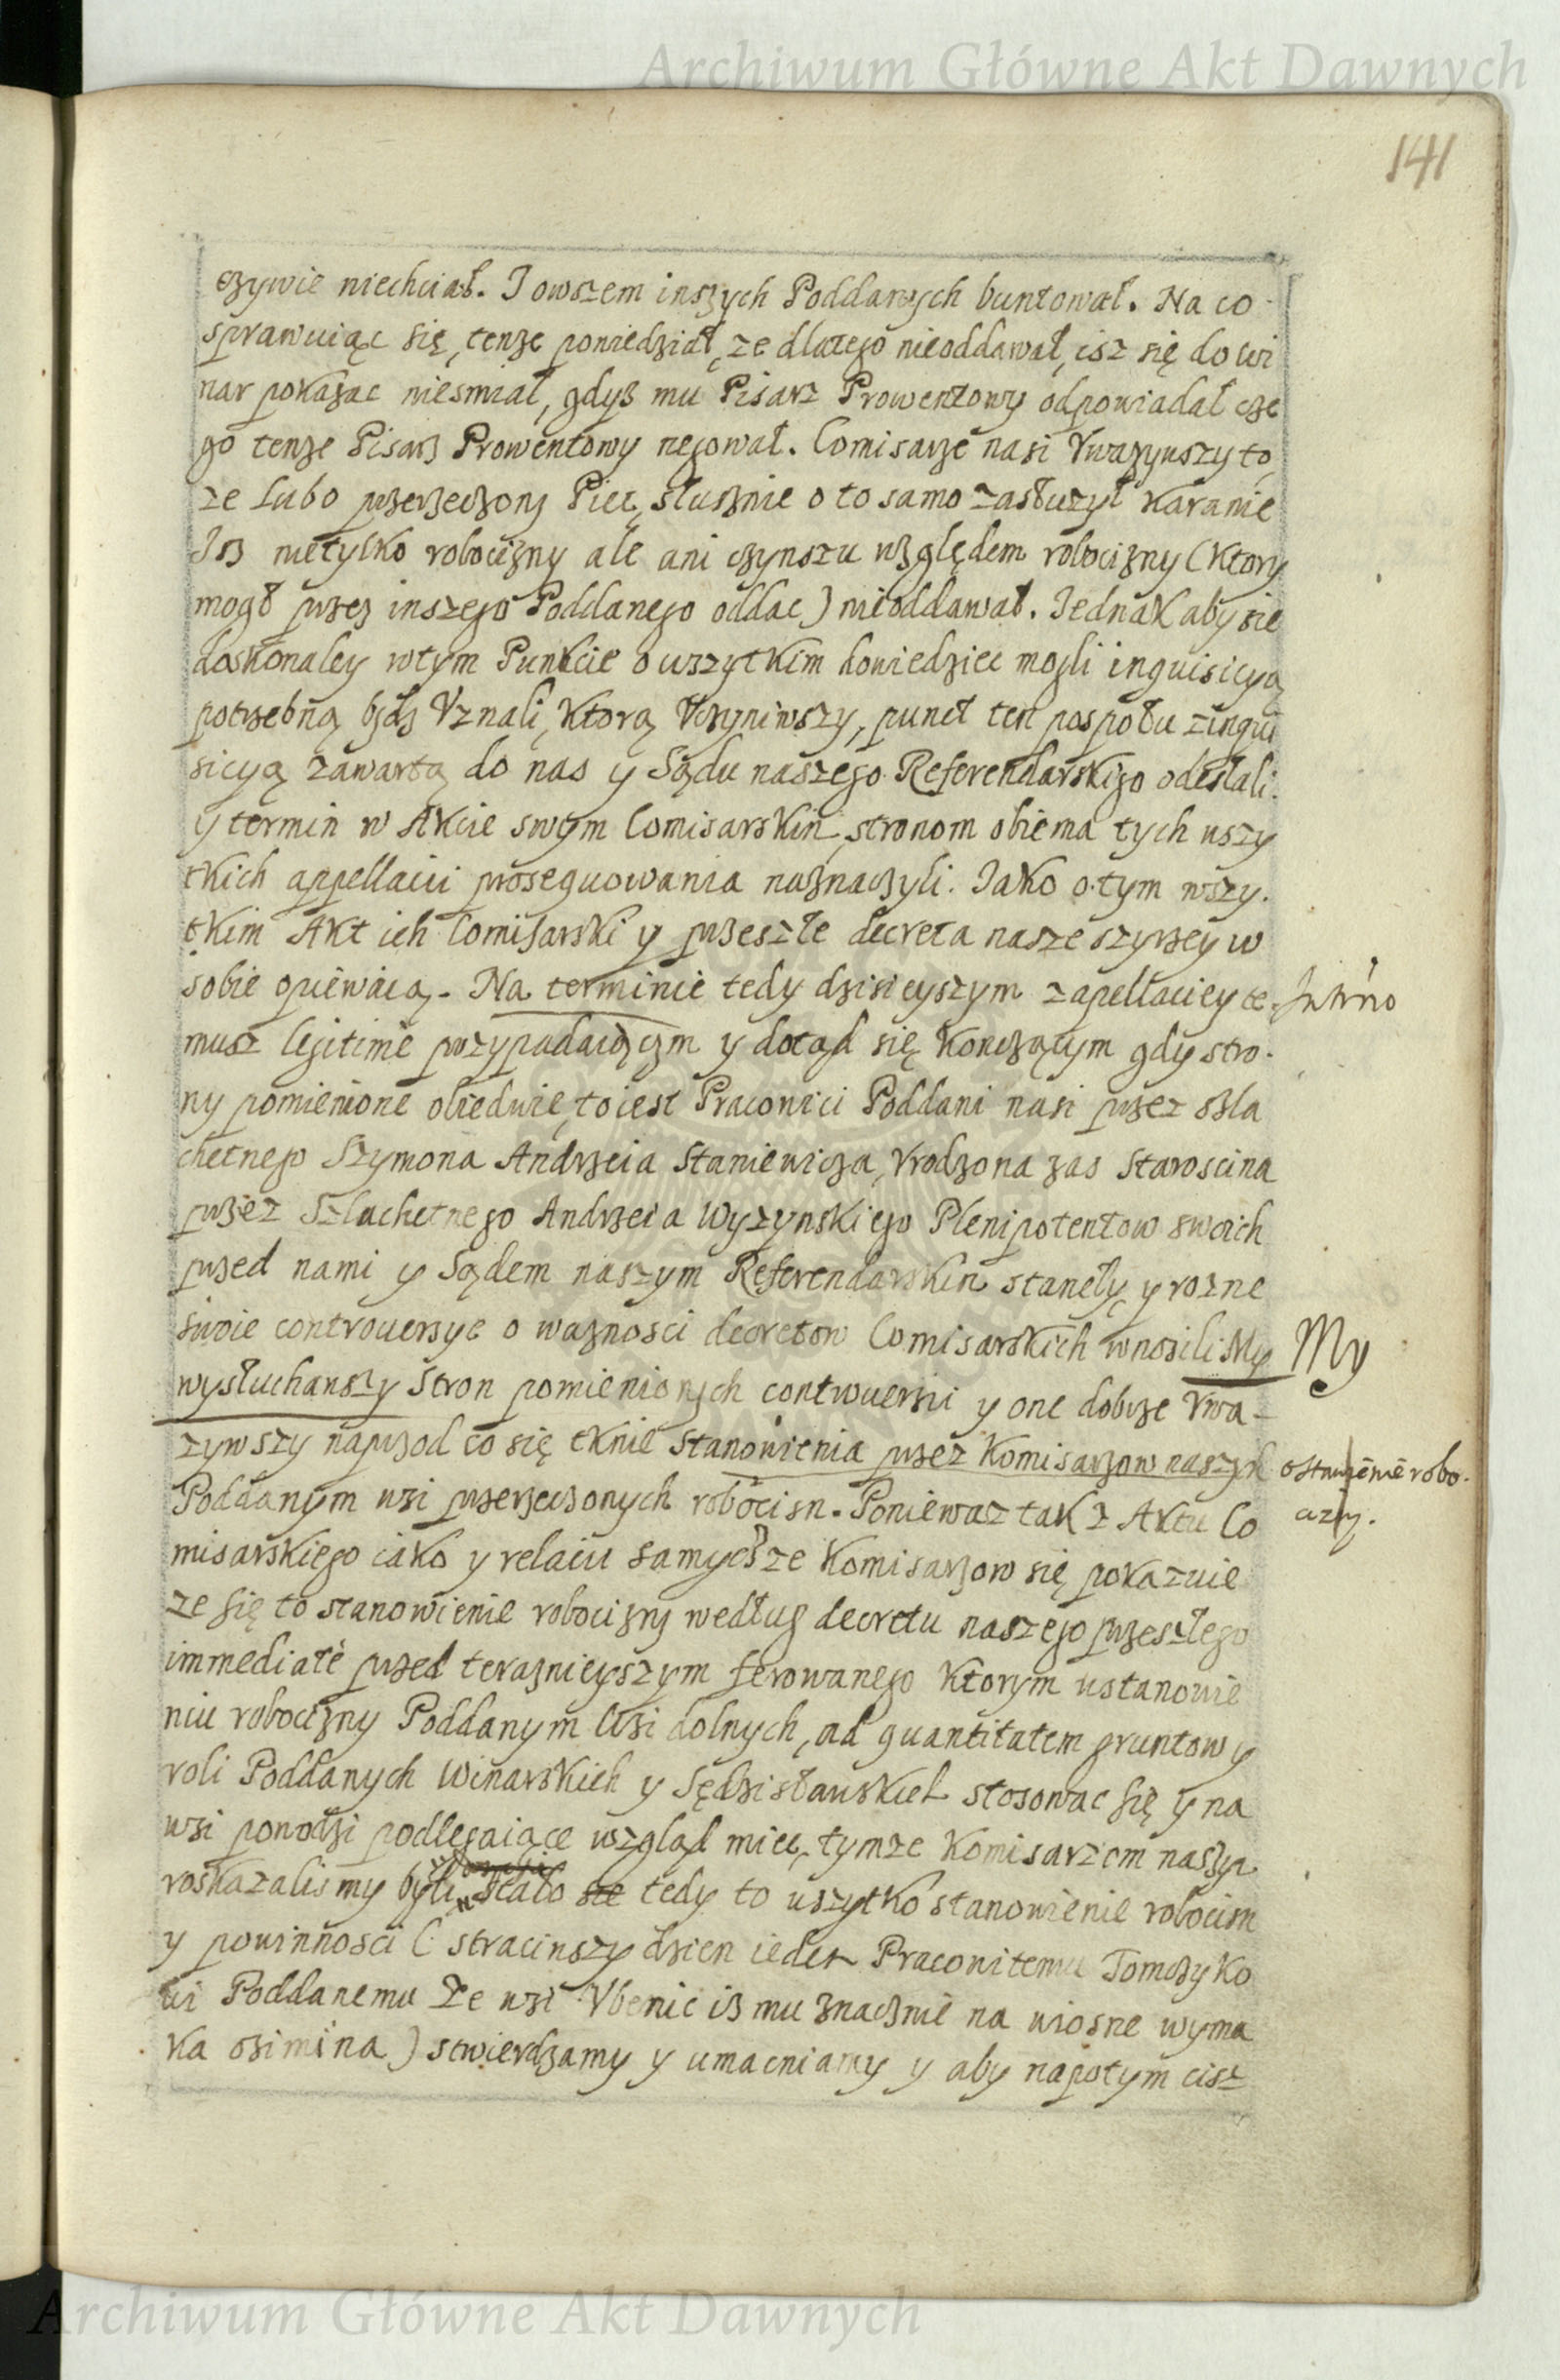 Archiwum Główne Akt Dawnych
141
czywie niechciał. I owszem inszych Poddanych buntował. Na co
sprawuiąc się, tenze poniedział, ze dlatego nieoddawał, isz się do Wi
nar pokazac niesmiał, gdyz mu Pisarz Prowentowy odpowiadał cze
go tenze Pisarz Prowentowy negował. Comisarze nasi Vwazywszy to,
ze lubo przerzeczony Piec, słusznie o to samo zasłuzył karanie
Isz nietylko robocizny ale ani czynszu względem robocizny (ktory
mogł przez inszego Poddanego oddac) nieoddawał. Iednak aby sie
doskonaley wtym Punkcie o wszytkim dowiedziec mogli inquisicyą
potrzebną bydz Vznali, ktorą Vczyniwszy, punct ten pospołu zinqui
sicyą zawartą do nas y Sądu naszego Referendarskiego odesłali.
y termin w Akcie swym Comisarskim, stronom obiema tych wszy
tkich appellacii prosequowania naznaczyli. Jako o tym wszy.
tkim Akt ich Comisarski y przeszłe decreta nasze szyrzey w
sobie opiewaią. Na terminie tedy dzisieyszym zapellaciey te
musz legitime przypadaiączm y dotąd się kończącym gdy stro.
ny pomienione obiedwie, to iest Pracowici Poddani nasi przez szla
chetnego Szymona Andrzeia Staniewicza, Vrodzona zas Staroscina
przez Szlachetnego Andrzeia Wyszynskiego Plenipotentow swoich
przed nami y Sądem naszym Referendarskim stanęły y rozne
swoie controversye o waznosci decretow Comisarskich wnosili. My
My
wysłuchawszy Stron pomienionych controuersii y one dobrze Vwa-
zywszy naprzod co się tknie Stanowienia przez Komisarzow naszych
Poddanym wsi przerzeczonych robocizn. Poniewaz tak z Aktu Co
misarskiego iako y relacii samychze Komisarzow się pokazuie
ze się to stanowienie robocizny według decretu naszego przeszłego
immediatè przed teraznieyszym ferowanego ktorym ustanowie
niu robocizny Poddanym Wsi dolnych, ad quantitatem gruntow y
roli Poddanych Winarskich y Sędzisławskich stosowac się y na
wsi powodzi podlegaiące wzgląd miec, tymze Komisarzom naszym
roskazalismy byli stało tedy to wszytko stanowienie robocizn
y powinnosci (straciwszy dzien ieden Pracowitemu Tomczyko
wi Poddanemu ze wsi Vbenic isz mu znacznie na wiosne wyma
ka ozimina) stwierdzamy y umacniamy y aby napotym cisz
Archiwum Główne Akt Dawnych